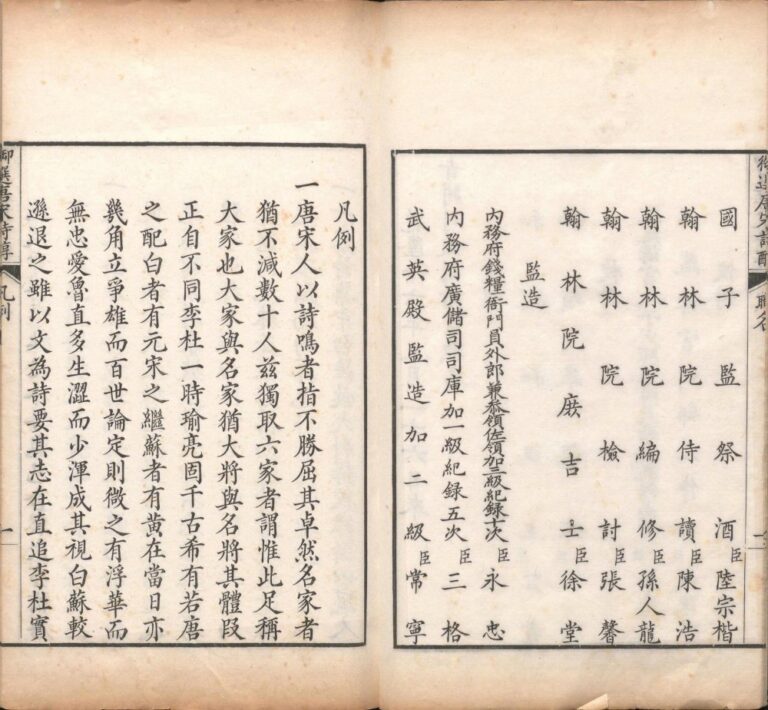 國子監祭酒臣陸宗楷
翰林院侍讀臣陳浩
翰林院編修臣孫人龍
翰林院檢討臣張馨
翰林院庶吉士臣徐堂
監造
內務府錢糧衙門員外郎兼叅領佐領加三級紀録七次臣永忠
內務府廣儲司司庫加一級紀録五次臣三格
武英殿監造加二級臣常寧
御選唐宋詩醇
凡例
一
凡例
一唐宋人以詩鳴者指不勝屈其卓然名家者
猶不減數十人兹獨取六家者謂惟此足稱
大家也大家與名家猶大將與名將其體段
正自不同李杜一時瑜亮固千古希有若唐
之配白者有元宋之繼蘇者有黃在當日亦
幾角立爭雄而百世論定則微之有浮華而
無忠愛魯直多生澀而少渾成其視白蘇較
遜退之雖以文為詩要其志在直追李杜實